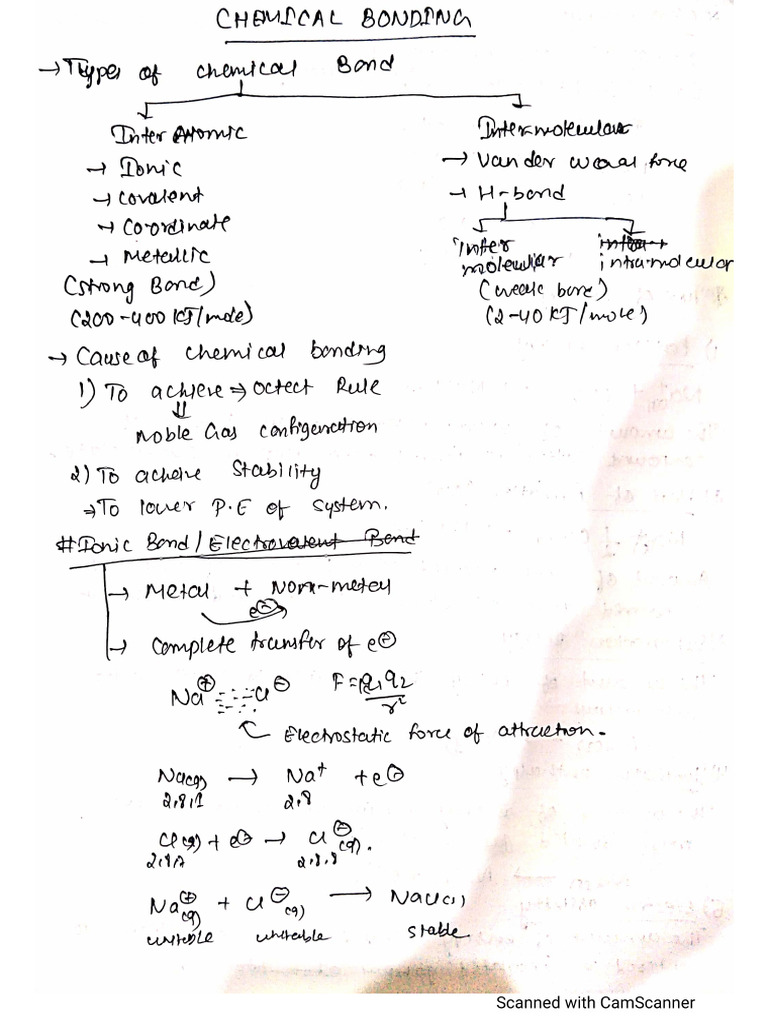 CHEMICAL BONDING
→ Types of chemical Bond
Inter Atomic
→ Ionic
→ Covalent
→ Coordinate
→ Metallic
(Strong Bond)
(200-400 KJ/mole)
Intermolecular
→ Vander waal force
→ H-bond
inter
molecular
intramolecular
(weak bond)
(2-40 KJ/mole)
→ Cause of chemical bonding
1) To achieve ⇒ Octect Rule
⇓
Noble Gas configeration
2) To acheive Stability
⇒ To lower P.E of system.
# Ionic Bond / Electrovalent Bond
→ Metal + Non-metal
e⊖
→ Complete transfer of e⊖
Na⊕ Cl⊖ F = q1q2/r²
Electrostatic force of attraction.
Na(g) → Na+ + e⊖
2,8,1 2,8
Cl(g) + e⊖ → Cl⊖(g).
2,8,7 2,8,8
Na⊕(g) + Cl⊖(g) → NaCl(s)
unstable unstable stable
Scanned with CamScanner